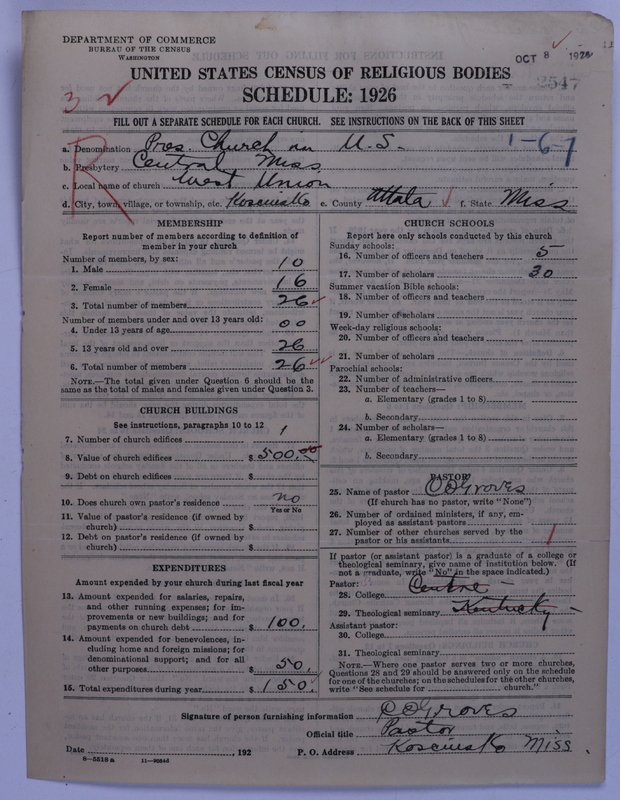 DEPARTMENT OF COMMERCE
BUREAU OF THE CENSUS
WASHINGTON
OCT 8 1926
2547
UNITED STATES CENSUS OF RELIGIOUS BODIES
SCHEDULE: 1926
3
FILL OUT A SEPARATE SCHEDULE FOR EACH CHURCH. SEE INSTRUCTIONS ON THE BACK OF THIS SHEET
R
a. Denomination Pres. Church in U.S. 1-6-7
b. Presbytery Central Miss
c. Local name of church West Union
d. City, town, village, or township, etc. Kosciusko e. County Attala f. State Miss
MEMBERSHIP
Report number of members according to definition of
member in your church
Number of members, by sex:
1. Male 10
2. Female 16
3. Total number of members 26
Number of members under and over 13 years old:
4. Under 13 years of age 00
5. 13 years old and over 26
6. Total number of members 26
NOTE.—The total given under Question 6 should be the
same as the total of males and females given under Question 3.
CHURCH BUILDINGS
See instructions, paragraphs 10 to 12
7. Number of church edifices 1
8. Value of church edifices $ 500.00
9. Debt on church edifices $
10. Does church own pastor's residence no
Yes or No
11. Value of pastor's residence (if owned by
church) $
12. Debt on pastor's residence (if owned by
church) $
EXPENDITURES
Amount expended by your church during last fiscal year
13. Amount expended for salaries, repairs,
and other running expenses; for im-
provements or new buildings; and for
payments on church debt $ 100.
14. Amount expended for benevolences, in-
cluding home and foreign missions; for
denominational support; and for all
other purposes $ 50.
15. Total expenditures during year $ 150.
CHURCH SCHOOLS
Report here only schools conducted by this church
Sunday schools:
16. Number of officers and teachers 5
17. Number of scholars 30
Summer vacation Bible schools:
18. Number of officers and teachers
19. Number of scholars
Week-day religious schools:
20. Number of officers and teachers
21. Number of scholars
Parochial schools:
22. Number of administrative officers
23. Number of teachers—
a. Elementary (grades 1 to 8)
b. Secondary
24. Number of scholars—
a. Elementary (grades 1 to 8)
b. Secondary
PASTOR
25. Name of pastor C O Groves
(If church has no pastor, write "None")
26. Number of ordained ministers, if any, em-
ployed as assistant pastors
27. Number of other churches served by the
pastor or his assistants 1
If pastor (or assistant pastor) is a graduate of a college or
theological seminary, give name of institution below. (If
not a graduate, write "No" in the space indicated.)
Pastor:
28. College Centre
29. Theological seminary Kentucky
Assistant pastor:
30. College
31. Theological seminary
NOTE.—Where one pastor serves two or more churches,
Questions 28 and 29 should be answered only on the schedule
for one of the churches; on the schedules for the other churches,
write "See schedule for church."
Signature of person furnishing information C O Groves
Official title Pastor
Date , 192 P. O. Address Kosciusko Miss.
8—5518 a 11—98646